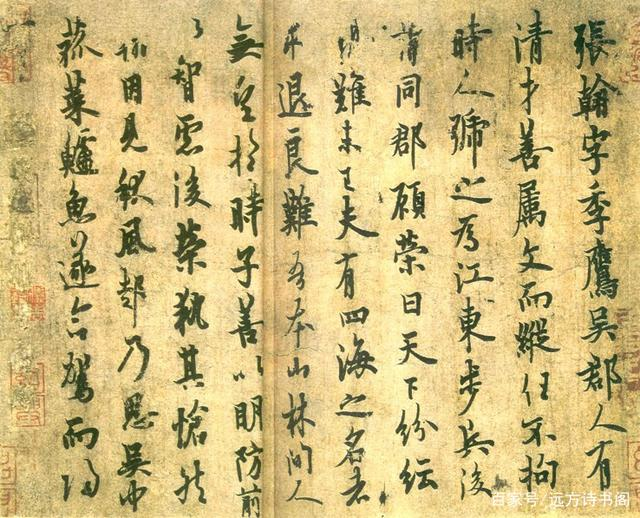 張翰字季鷹吳郡人有
清才善属文而縱任不拘
時人號之為江東步兵後
謂同郡顧榮曰天下紛紜
禍難未已夫有四海之名者
求退良難吾本山林間人
無望於時子善以明防前
以智慮後榮執其愴然
翰因見秋風起乃思吳中
菰菜鱸魚遂命駕而歸
百家号/远方诗书阁